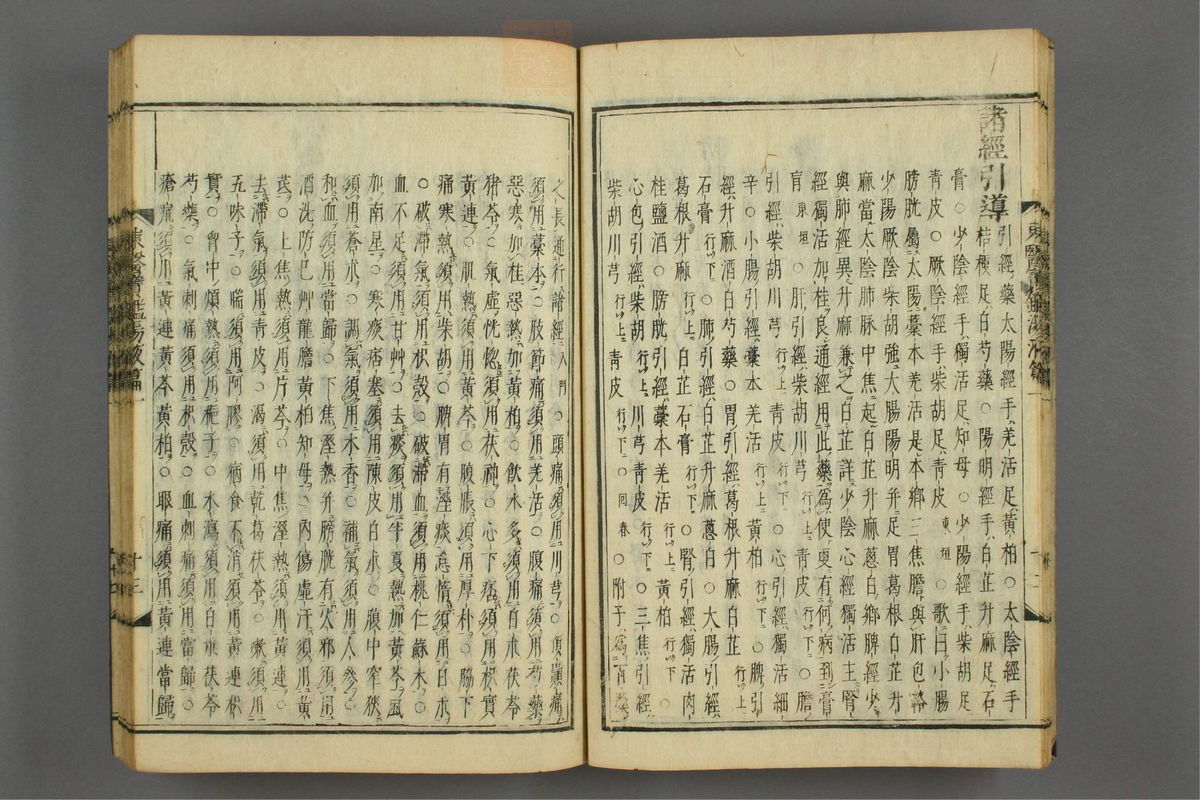 諸經引導
引經藥太陽經手羌活足黃柏○太陰經手
桔梗足白芍藥○陽明經手白芷升麻足石
膏○少陰經手獨活足知母○少陽經手柴胡足
青皮○厥陰經手柴胡足青皮東垣○歌曰小腸
膀胱屬太陽藁本羌活是本鄉三焦膽與肝包絡
少陽厥陰柴胡強大腸陽明并足胃葛根白芷升
麻當太陰肺脉中焦起白芷升麻蔥白鄉脾經少
與肺經異升麻兼之白芷詳少陰心經獨活主腎
經獨活加桂良通經用此藥為使更有何病到膏
肓東垣○肝引經柴胡川芎行上青皮行下○膽
引經柴胡川芎行上青皮行下○心引經獨活細
辛○小腸引經藁本羌活行上黃柏行下○脾引
經升麻酒白芍藥○胃引經葛根升麻白芷行上
石膏行下○肺引經白芷升麻蔥白○大腸引經
葛根升麻白芷行上石膏行下○腎引經獨活肉
桂鹽酒○膀胱引經藁本羌活行上黃柏行下○
心包引經柴胡行上川芎青皮行下○三焦引經
柴胡川芎行上青皮行下○回春○附子為百藥
之長通行諸經入門○頭痛須用川芎○頂巔痛
須用藁本○肢節痛須用羌活○腹痛須用芍藥
惡寒加桂惡熱加黃柏○飲水多須用白朮茯苓
猪苓○氣虛恍惚須用茯神○心下痞須用枳實
黃連○肌熱須用黃芩○腹脹須用厚朴○脇下
痛寒熱須用柴胡○脾胃有濕痰怠惰須用白朮
○破滯氣須用枳殼○破滯血須用桃仁蘇木○
血不足須用甘艸○去痰須用半夏熱加黃芩風
加南星○寒痰痞塞須用陳皮白朮○腹中窄狹
須用蒼朮○調氣須用木香○補氣須用人參○
和血須用當歸○下焦濕熱并膀胱有火邪須用
酒洗防己艸龍膽黃柏知母○內傷虛汗須用黃
芪○上焦熱須用片芩○中焦濕熱須用黃連○
去滯氣須用青皮○渴須用乾葛茯苓○嗽須用
五味子○喘須用阿膠○宿食不消須用黃連枳
實○胸中煩熱須用梔子○水瀉須用白朮茯苓
芍藥○氣刺痛須用枳殼○血刺痛須用當歸○
瘡痛須用黃連黃芩黃柏○眼痛須用黃連當歸